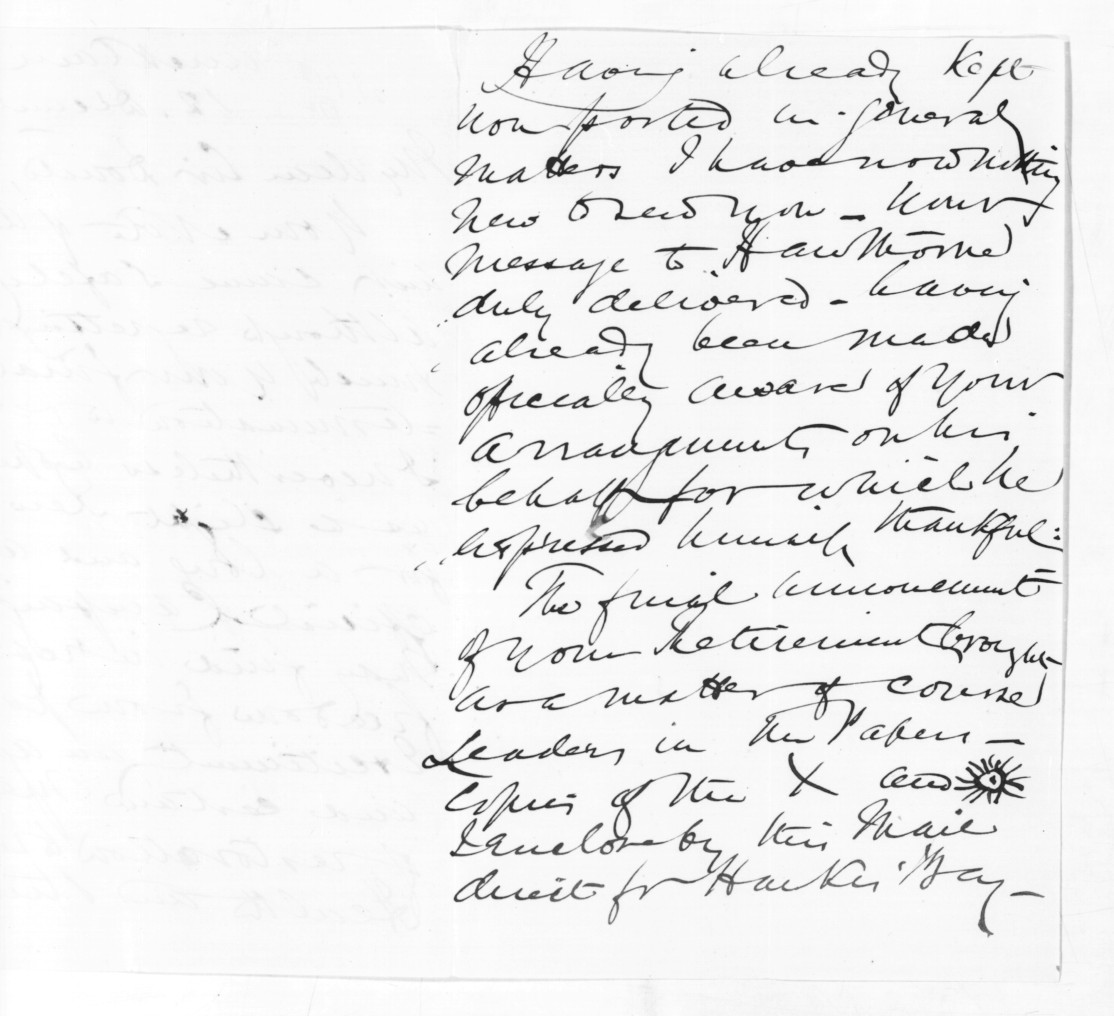 Having already kept
you posted in general
matters I have now nothing
new to send you - Your
message to Hawthorne
duly delivered - having
already been made
officially aware of your
arrangements on his
behalf for which he
expressed himself thankful:
The final announcement
of your Retirement brought
as a matter of course
Leaders in the Papers -
Copies of the X and
I enclose by this Mail
direct for Hawkes' Bay -